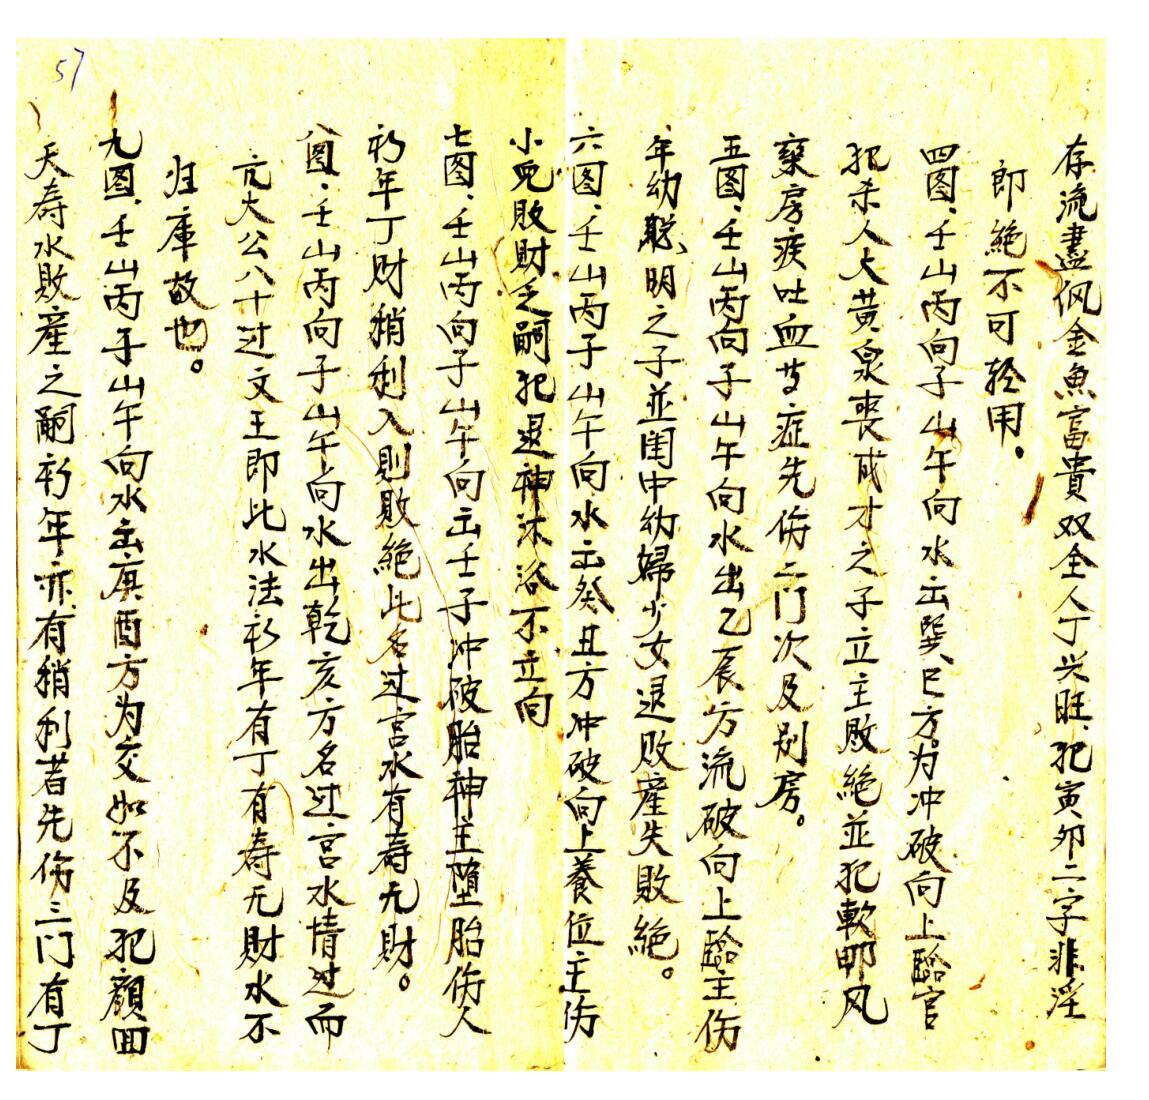 存流盡佩金魚富貴双全人丁兴旺、犯寅卯二字非淫
即絕不可轻用。
四图、壬山丙向子山午向水出巽巳方为冲破向上臨官
犯杀人大黄泉喪成才之子立主敗絕並犯軟脚风
癆疾吐血等症先伤二门次及别房。
五图、壬山丙向子山午向水出乙辰方流破向上臨主伤
年幼聪明之子並闺中幼婦少女退敗產失敗絕。
六图、壬山丙子山午向水出癸丑方冲破向上養位主伤
小児敗財乏嗣犯退神沐浴不立向
七图、壬山丙向子山午向出壬子冲破胎神主墮胎伤人
初年丁财稍利入則敗絕此名过宫水有寿无财。
图、壬山丙向子山午向水出乾亥方名过宫水情过而
亢大公八十过文王即此水法初年有丁有寿无財水不
归庫故也。
九图、壬山丙子山午向水出庚酉方为交如不及犯顏回
夭寿水敗產乏嗣初年亦有稍利者先伤三门有丁
57